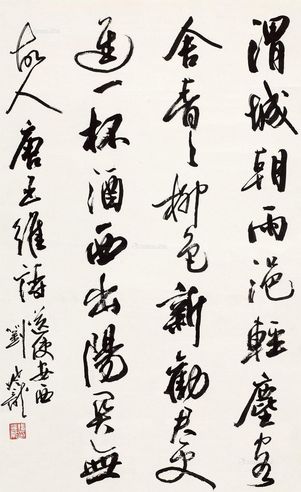 渭城朝雨浥輕塵客
舍青々柳色新勸君更
進一杯酒西出陽關無
故人 唐王維詩 送使安西
劉